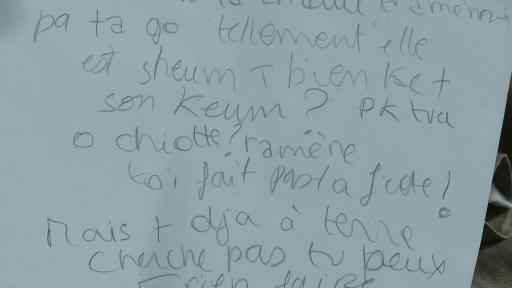 pa ta go tellement elle
est sheum T bien ke t
son keum? pk tva
o chiotte? ramène
toi fait pas la fiote!
Mais t dja à terre
cherche pas tu peux
rien faire